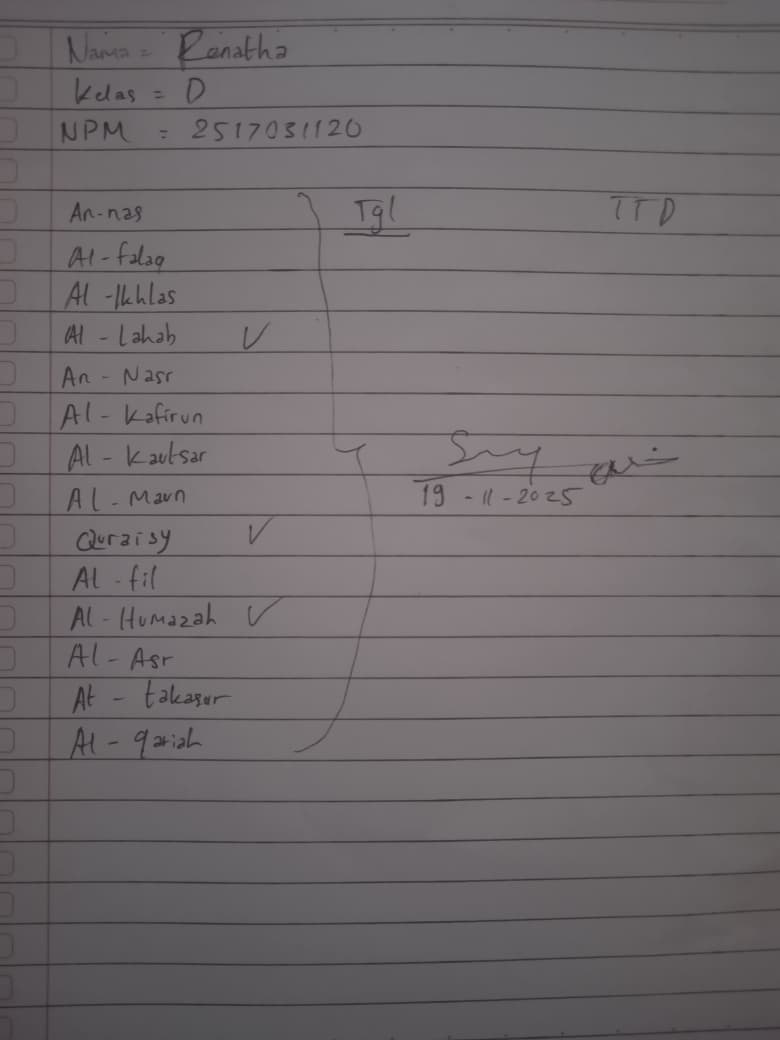 Nama = Renatha
Kelas = D
NPM = 2517031120
Tgl TTD
An-nas
Al-falaq
Al-Ikhlas
Al-Lahab ✓
An-Nasr
Al-Kafirun
Al-Kautsar
Al-Maun
Quraisy ✓
Al-fil
Al-Humazah ✓
Al-Asr
At-takasur
Al-qariah
19-11-2025